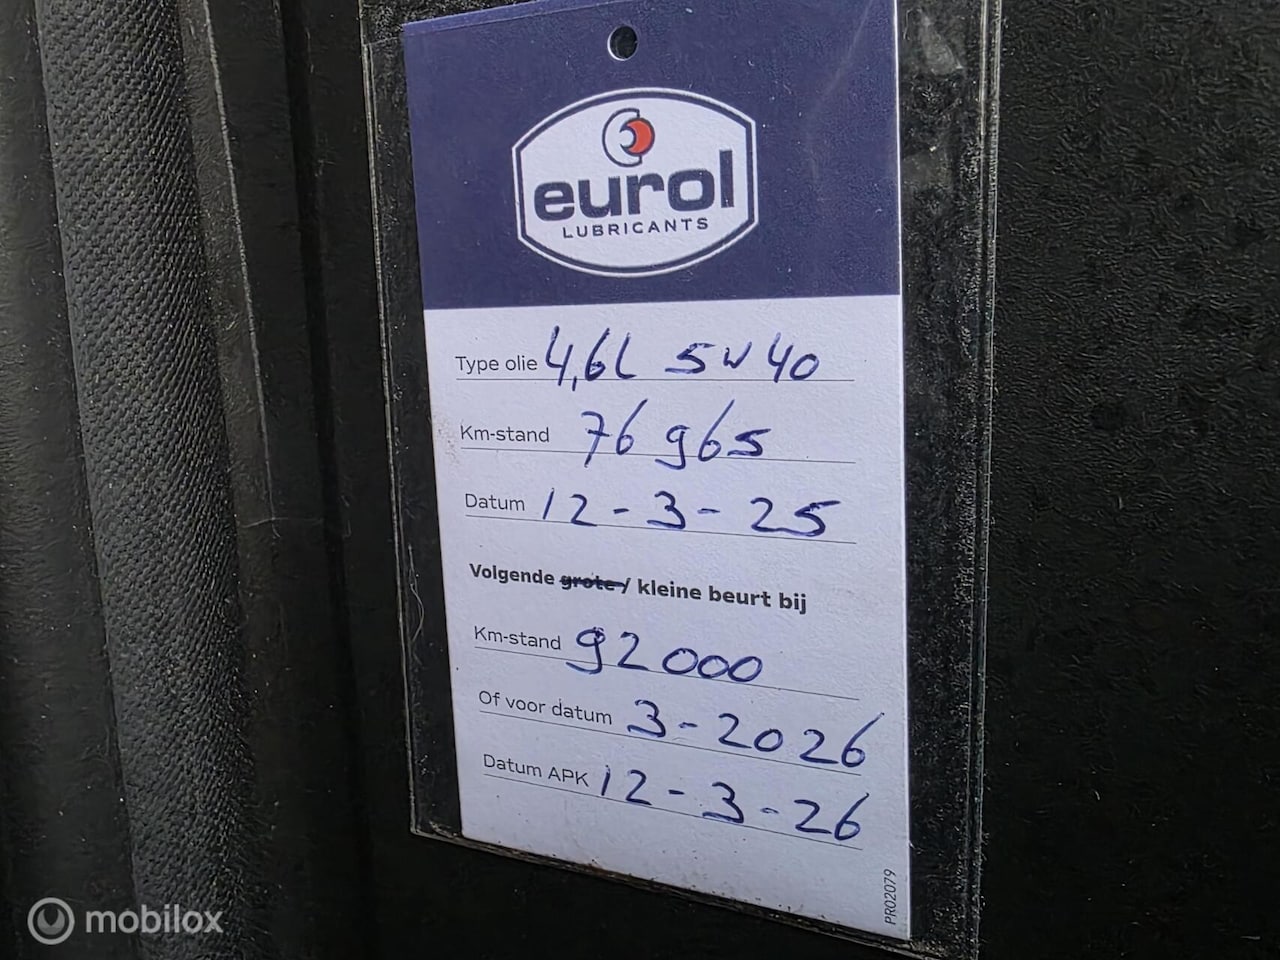 eurol
LUBRICANTS
Type olie 4,6L 5W40
Km-stand 76 965
Datum 12-3-25
Volgende grote / kleine beurt bij
Km-stand 92000
Of voor datum 3-2026
Datum APK 12-3-26
PR02079
mobilox